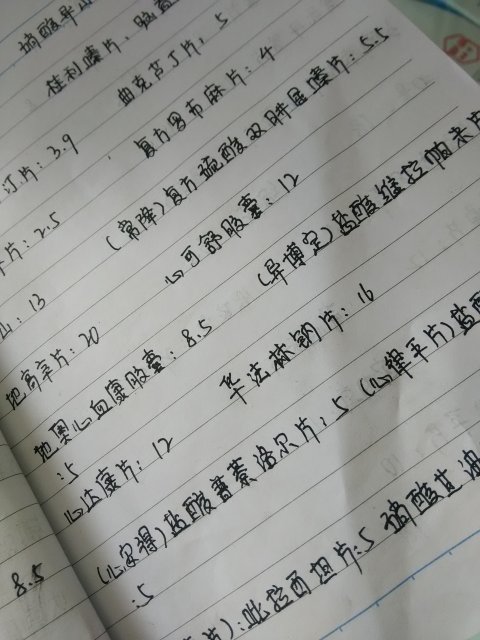 硝酸异山
桂利嗪片,
曲克芦丁片, 5
汀片: 3.9 复方罗布麻片: 4
片: 2.5 (常降)复方硫酸双肼屈嗪片: 5.5
山: 13 心可舒胶囊: 12
地高辛片: 20 (异博定)盐酸维拉帕米片
地奥心血康胶囊: 8.5
:5 华法林钠片: 16
心达康片: 12
(心得)盐酸普萘洛尔片: 5 (心律平片)盐酸
8.5 :5
片):吡拉西坦片:5 硝酸甘油